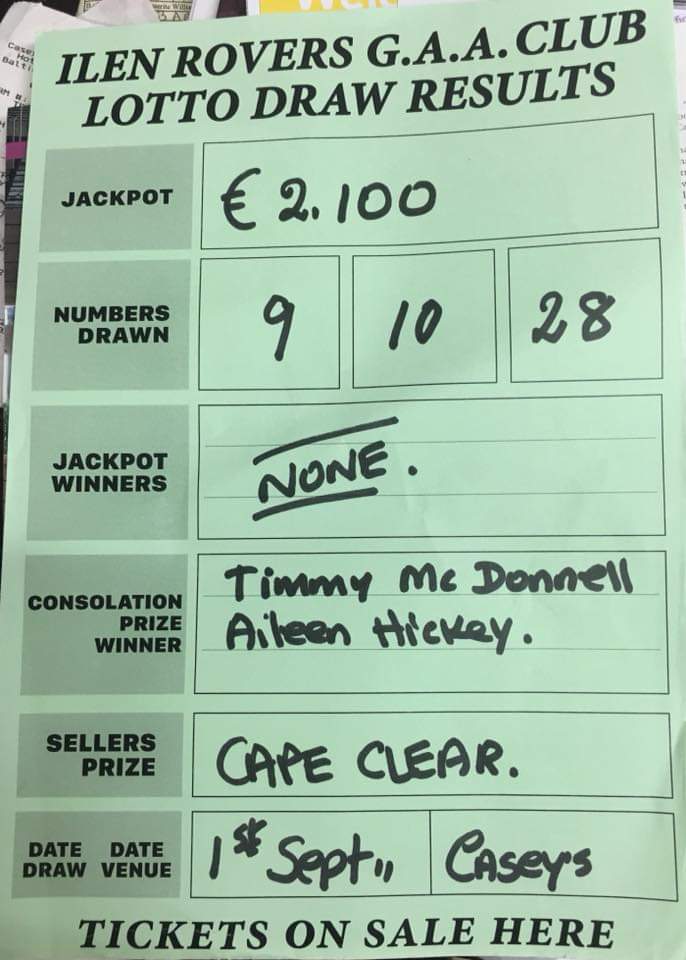 ILEN ROVERS G.A.A. CLUB
LOTTO DRAW RESULTS
JACKPOT
€ 2.100
NUMBERS
DRAWN
9 10 28
JACKPOT
WINNERS
NONE.
CONSOLATION
PRIZE
WINNER
Timmy Mc Donnell
Aileen Hickey.
SELLERS
PRIZE
CAPE CLEAR.
DATE DATE
DRAW VENUE
1st Sept,,
Casey's
TICKETS ON SALE HERE